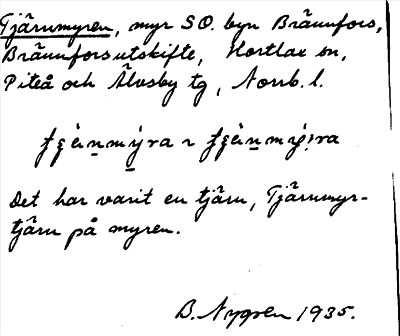 Tjärnmyren, myr SO. byn Brännfors,
Brännfors utskifte, Hortlax sn,
Piteå och Älvsby tg, Norrb. l.
Det har varit en tjärn, Tjärnmyr-
tjärn på myren.
B. Nygren 1935.